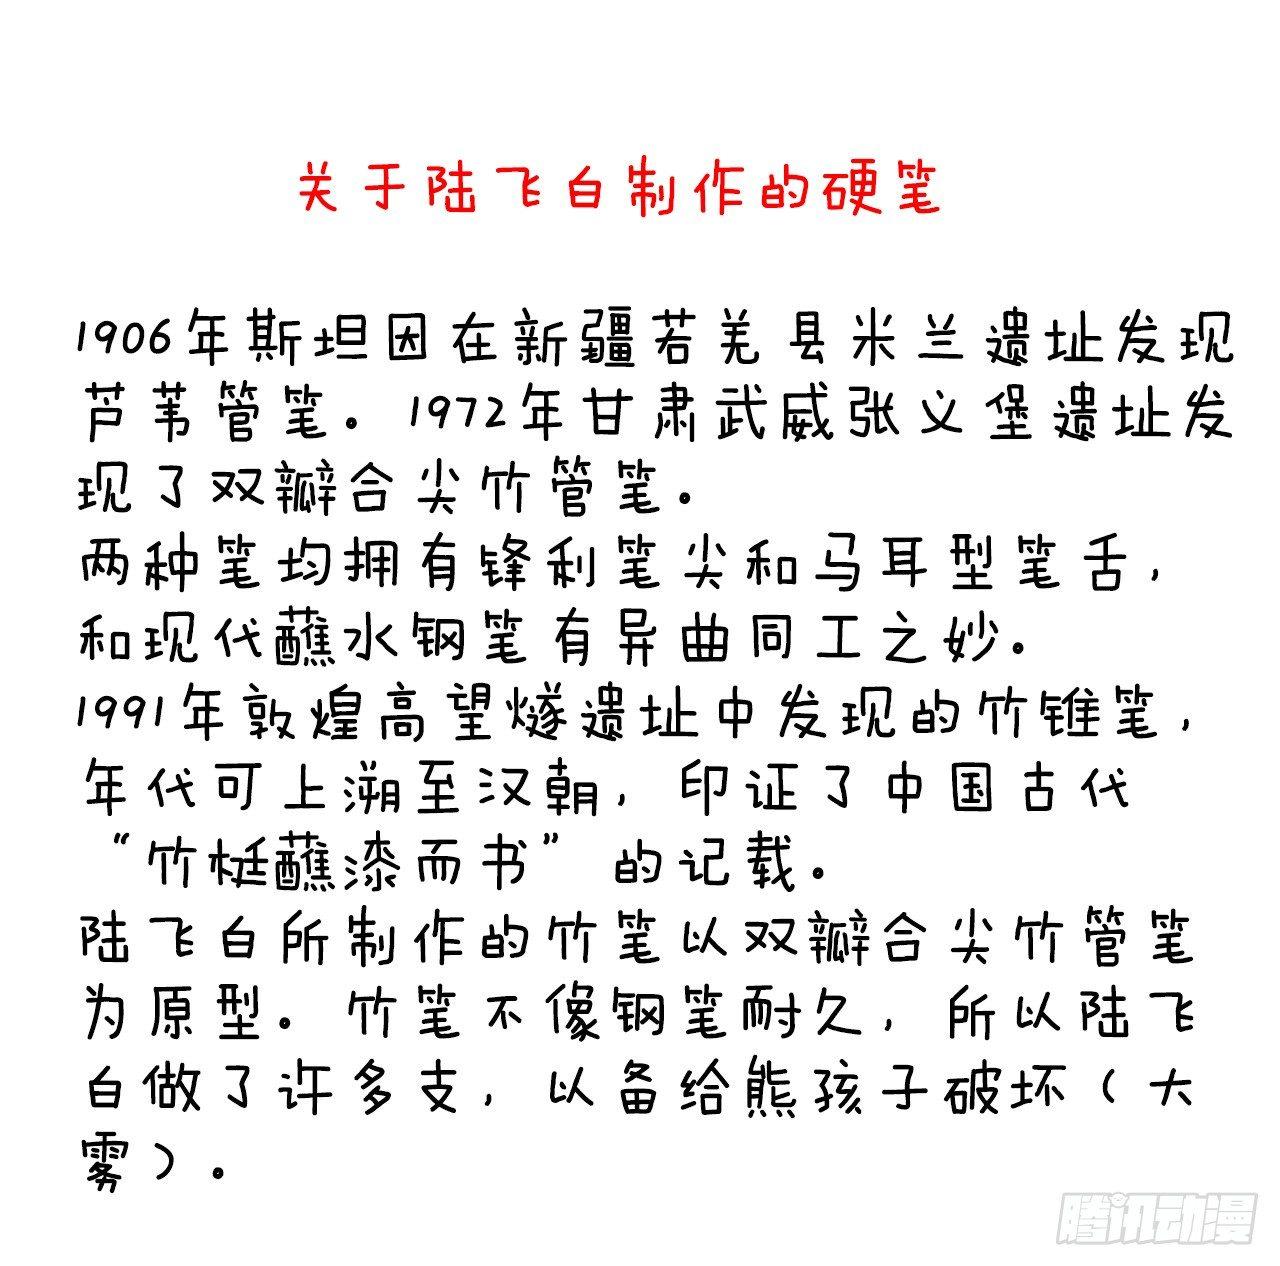 关于陆飞白制作的硬笔
1906年斯坦因在新疆若羌县米兰遗址发现
芦苇管笔。1972年甘肃武威张义堡遗址发
现了双瓣合尖竹管笔。
两种笔均拥有锋利笔尖和马耳型笔舌，
和现代蘸水钢笔有异曲同工之妙。
1991年敦煌高望燧遗址中发现的竹锥笔，
年代可上溯至汉朝，印证了中国古代
“竹梃蘸漆而书”的记载。
陆飞白所制作的竹笔以双瓣合尖竹管笔
为原型。竹笔不像钢笔耐久，所以陆飞
白做了许多支，以备给熊孩子破坏（大
雾）。
腾讯动漫